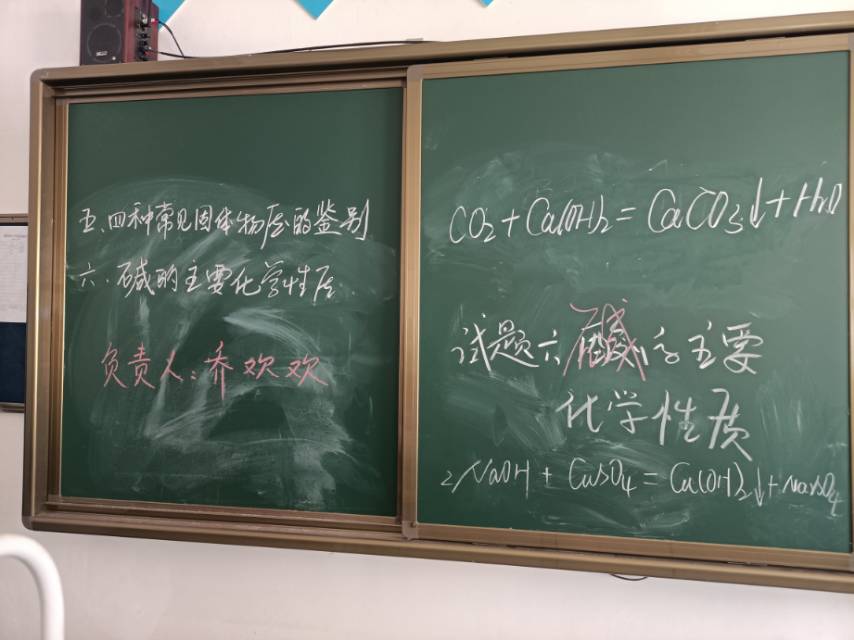 五、四种常见固体物质的鉴别
六、碱的主要化学性质
负责人:乔欢欢
CO₂+Ca(OH)₂=CaCO₃↓+H₂O
试题六 碱的主要
化学性质
2NaOH+CuSO₄=Cu(OH)₂↓+Na₂SO₄